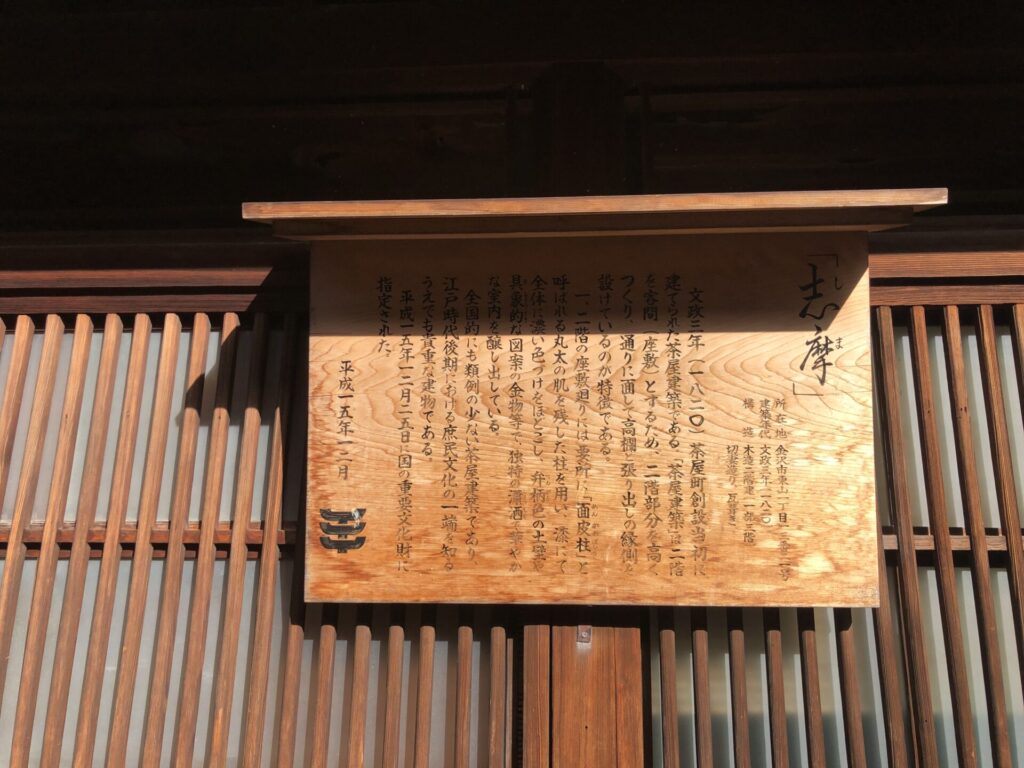 「志摩」
しま
所在地 金沢市東山一丁目一三番二一号
建築年代 文政三年(一八二〇)
構造 木造二階建一部三階
切妻造り、瓦葺き
文政三年(一八二〇)茶屋町創設当初に
建てられた茶屋建築である。茶屋建築は二階
を客間(座敷)とするため、二階部分を高く
つくり、通りに面して高欄と張り出しの縁側を
設けているのが特徴である。
一、二階の座敷廻りには要所に「面皮柱」と
呼ばれる丸太の肌を残した柱を用い、漆にて
全体に濃い色づけをほどこし、弁柄色の土壁や
具象的な図案の金物等で、独特の瀟洒で華やか
な室内を醸し出している。
全国的にも類例の少ない茶屋建築であり、
江戸時代後期における庶民文化の一端を知る
うえでも貴重な建物である。
平成一五年一二月二五日に国の重要文化財に
指定された。
平成一五年一二月